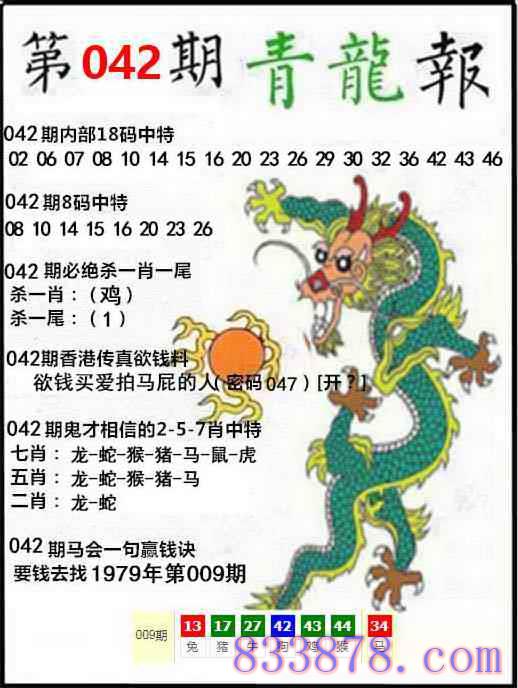 第042期 青龍報
042期内部18码中特
02 06 07 08 10 14 15 16 20 23 26 29 30 32 36 42 43 46
042期8码中特
08 10 14 15 16 20 23 26
042 期必绝杀一肖一尾
杀一肖：（鸡）
杀一尾：（1）
042期香港传真欲钱料
欲钱买爱拍马屁的人(密码047)[开？]
042期鬼才相信的2-5-7肖中特
七肖： 龙-蛇-猴-猪-马-鼠-虎
五肖： 龙-蛇-猴-猪-马
二肖： 龙-蛇
042 期马会一句赢钱诀
要钱去找1979年第009期
009期 13 17 27 42 43 44 34
兔 猪 牛 狗 鸡 猴 马
833878.com